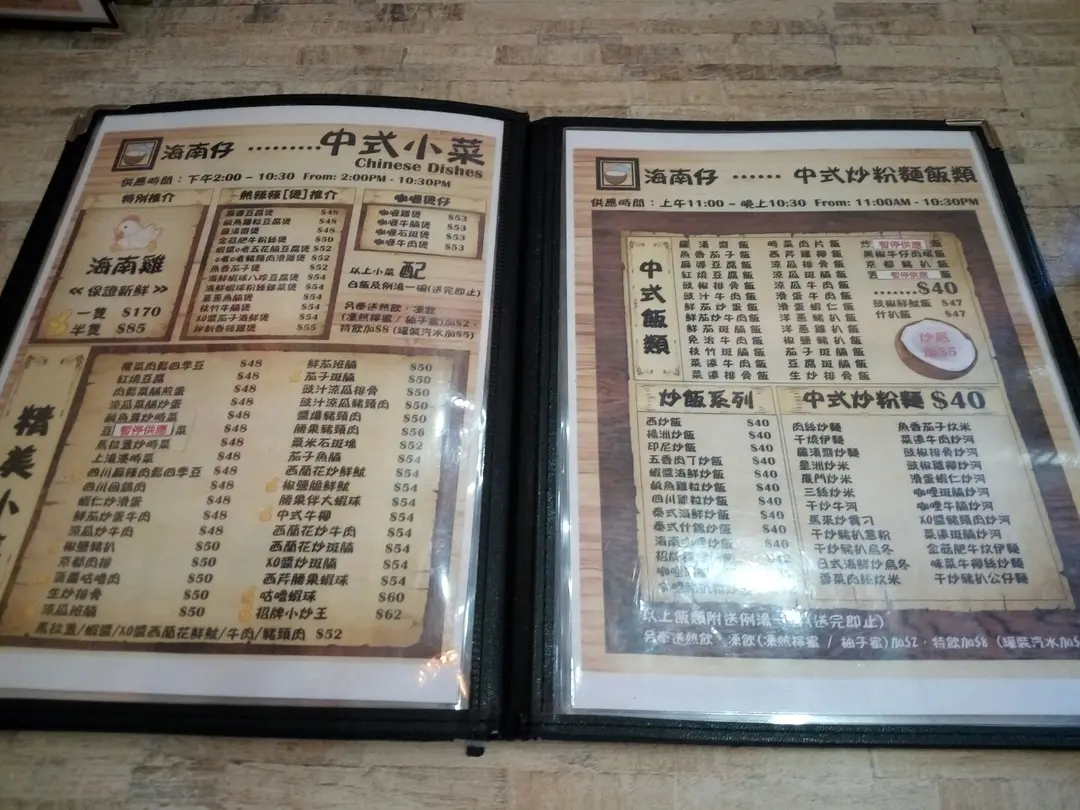 海南仔 ·········中式小菜
Chinese Dishes
供應時間：下午2:00 - 10:30 From: 2:00PM - 10:30PM
特別推介
海南雞
≪保證新鮮≫
一隻 $170
半隻 $85
熱辣辣[煲]推介
麻婆豆腐煲 $48
鹹魚雞粒豆腐煲 $48
羅漢齋煲 $48
金菇肥牛粉絲煲 $50
蝦醬啫啫五花腩豆腐煲 $52
啫啫豬頸肉滑雞煲 $52
魚香茄子煲 $52
海鮮蝦球八珍豆腐煲 $54
海鮮蝦球粉絲雜菜煲 $54
薑蔥魚腩煲 $54
枝竹牛腩煲 $54
XO醬茄子海鮮煲 $54
$55
咖喱煲仔
咖喱雞煲 $53
咖喱牛腩煲 $53
咖喱石斑煲 $53
咖喱牛肉煲 $53
以上小菜 配
白飯及例湯一碗(送完即止)
另奉送熱飲，凍飲
(凍熱檸蜜 / 柚子蜜)加$2，
特飲加$8 (罐裝汽水加$5)
精美小
欖菜肉鬆四季豆 $48
紅燒豆腐 $48
肉鬆菜脯煎蛋 $48
涼瓜菜脯炒蛋 $48
鹹魚薑炒崎菜 $48
豆 暫停供應 菜 $48
馬拉盞炒崎菜 $48
上湯浸崎菜 $48
四川麻辣肉鬆四季豆 $48
四川回鍋肉 $48
蝦仁炒滑蛋 $48
鮮茄炒蛋牛肉 $48
涼瓜炒牛肉 $48
椒鹽豬扒 $50
京都肉排 $50
菠蘿咕嚕肉 $50
生炒排骨 $50
涼瓜班腩 $50
鮮茄班腩 $50
茄子斑腩 $50
豉汁涼瓜排骨 $50
豉汁涼瓜豬頸肉 $50
鹽燒豬頸肉 $50
腰果豬頸肉 $56
粟米石斑塊 $52
茄子魚腩 $54
西蘭花炒鮮魷 $54
椒鹽脆鮮魷 $54
腰果伴大蝦球 $54
中式牛柳 $54
西蘭花炒牛肉 $54
西蘭花炒斑腩 $54
XO醬炒斑腩 $54
西芹腰果蝦球 $54
咕嚕蝦球 $60
招牌小炒王 $62
馬拉盞/蝦醬/XO醬西蘭花鮮魷/牛肉/豬頸肉 $52
海南仔 ······ 中式炒粉麵飯類
供應時間：上午11:00 - 晚上10:30 From: 11:00AM - 10:30PM
中式飯類
羅漢齋飯
魚香茄子飯
麻婆豆腐飯
紅燒豆腐飯
豉椒排骨飯
豉汁牛肉飯
鮮茄炒蛋飯
鮮茄炒牛肉飯
鮮茄斑腩飯
免治牛肉飯
枝竹斑腩飯
菜遠排骨飯
崎菜肉片飯
西芹雞柳飯
涼瓜排骨飯
涼瓜斑腩飯
滑蛋牛肉飯
滑蛋蝦仁飯
洋蔥豬扒飯
洋蔥雞扒飯
椒鹽豬扒飯
茄子斑腩飯
豆腐斑腩飯
生炒排骨飯
炸 暫停供應 飯
黑椒牛仔肉塊飯
京都豬扒飯
暫停供應 飯
·······$40
豉椒鮮魷飯 $47
什扒飯 $47
炒底
加$5
炒飯系列
西炒飯 $40
楊洲炒飯 $40
印尼炒飯 $40
五香肉丁炒飯 $40
蝦醬海鮮炒飯 $40
鹹魚雞粒炒飯 $40
四川雞粒炒飯 $40
泰式海鮮炒飯 $40
泰式什錦炒飯 $40
海南 炒飯 $40
中式炒粉麵 $40
肉絲炒麵
干燒伊麵
羅漢齋炒麵
星洲炒米
廈門炒米
三絲炒米
干炒牛河
馬來炒貴刁
干炒豬扒意粉
干炒豬扒烏冬
日式海鮮炒烏冬
雪菜肉絲炆米
魚香茄子炆米
菜遠牛肉炒河
豉椒排骨炒河
豉椒雞柳炒河
滑蛋蝦仁炒河
咖喱斑腩炒河
咖喱牛腩炒河
XO醬豬頸肉炒河
菜遠斑腩炒河
金菇肥牛炆伊麵
味菜牛柳絲炒麵
干炒豬扒公仔麵
以上飯類附送例湯一 (送完即止)
另奉送熱飲，凍飲(凍熱檸蜜 / 柚子蜜)加$2，特飲加$8 (罐裝汽水加$